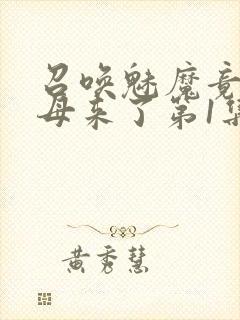 召唤魅魔竟
母来了第1集
黄秀慧